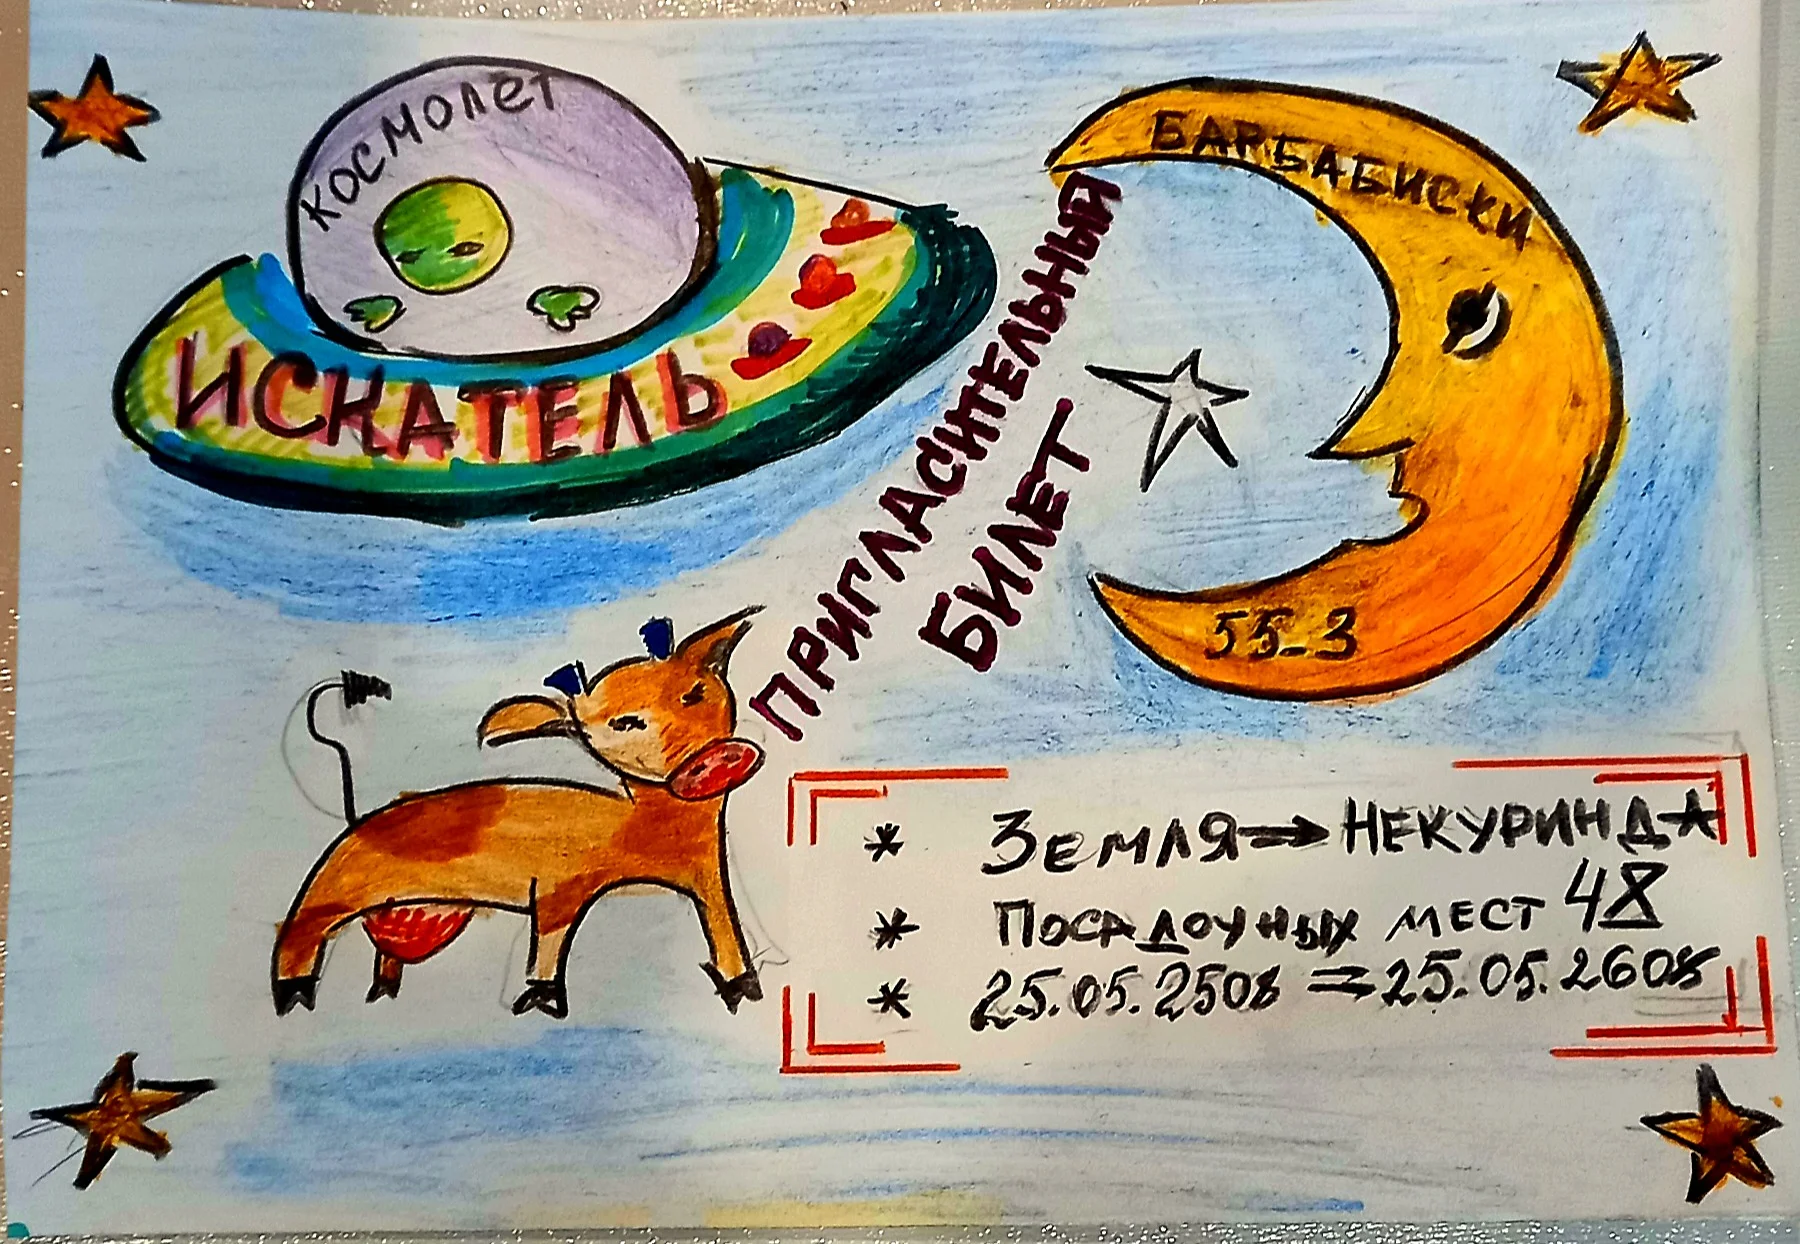 КОСМОЛЕТ
ИСКАТЕЛЬ
БАРБАБИСКИ
55-3
ПРИГЛАСИТЕЛЬНЫЙ
БИЛЕТ
* ЗЕМЛЯ → НЕКУРИНДА
* ПОСАДОЧНЫХ МЕСТ 48
* 25.05.2508 = 25.05.2608